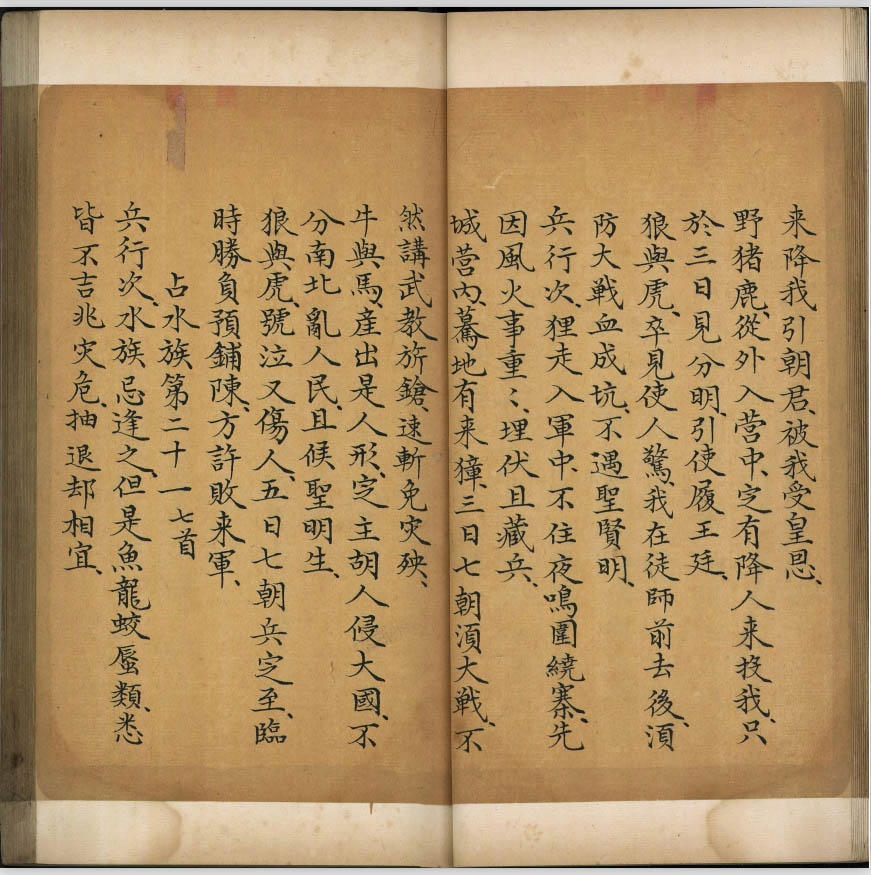 来降我引朝君、被我受皇恩、
野猪鹿、從外入营中、定有降人来投我、只
於三日見分明、引使履王廷、
狼與虎、卒見使人驚、我在徒師前去後、湏
防大戦血成坑、不遇聖賢明、
兵行次、狸走入軍中、不住夜鳴圍繞寨、先
因風火事重〻、埋伏且藏兵、
城营内、驀地有来獐、三日七朝湏大戦、不
然講武教旂鎗、速斬免灾殃、
牛與馬、産出是人形、定主胡人侵大國、不
分南北亂人民、且候聖明生、
狼與虎、號泣又傷人、五日七朝兵定至、臨
時勝負預鋪陳、方許敗来軍、
占水族第二十一七首
兵行次、水族忌逢之、但是魚龍蛟蜃類、悉
皆不吉兆灾危、抽退却相宜、